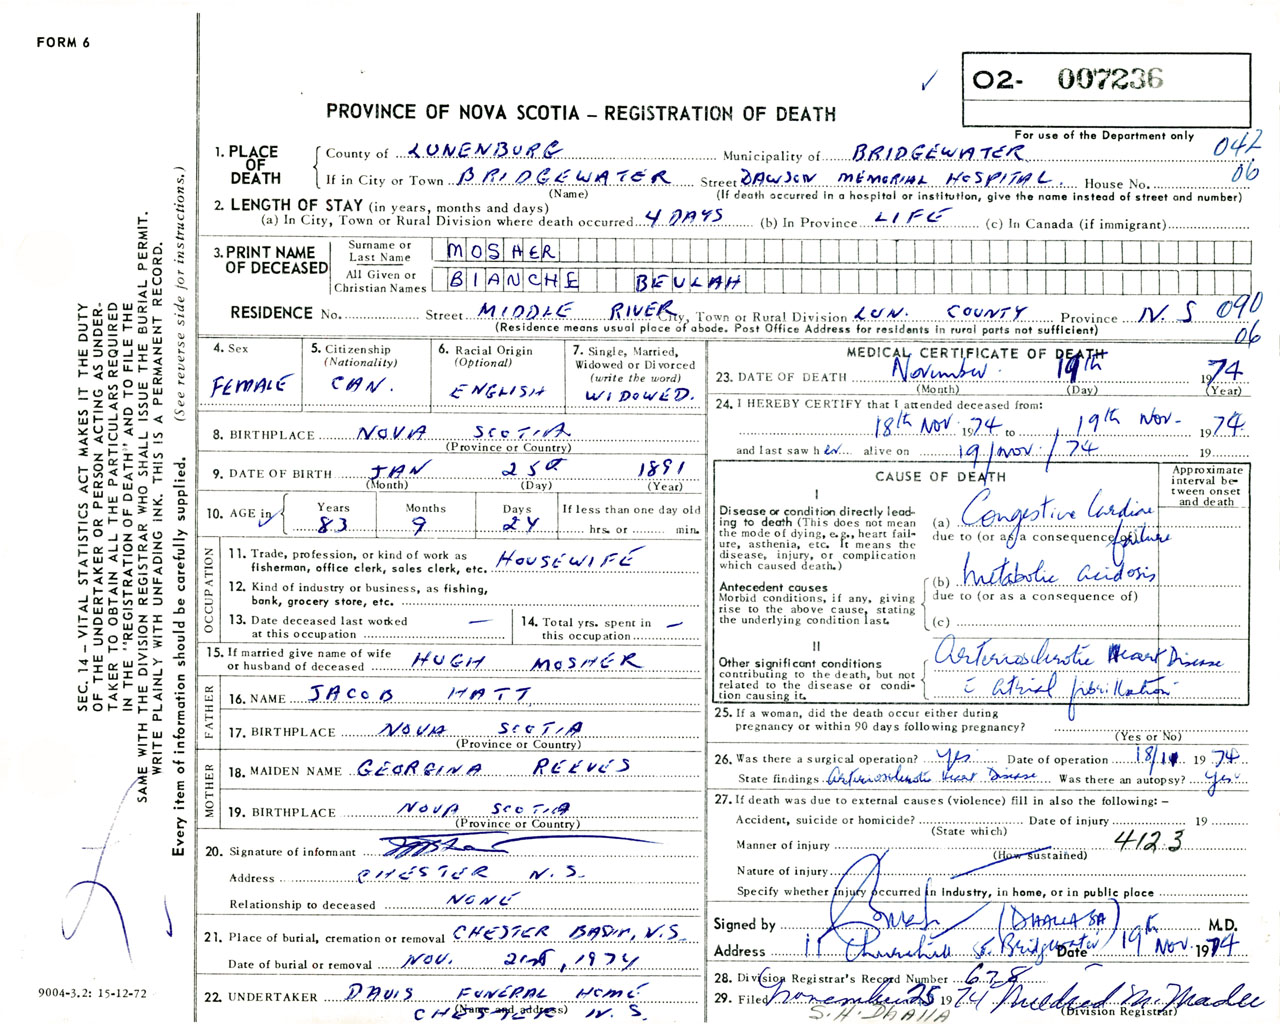 FORM 6
O2- 007236
For use of the Department only
PROVINCE OF NOVA SCOTIA – REGISTRATION OF DEATH
1. PLACE OF DEATH
County of LUNENBURG Municipality of BRIDGEWATER 042
If in City or Town BRIDGEWATER Street DAWSON MEMORIAL HOSPITAL House No. 06
(Name) (If death occurred in a hospital or institution, give the name instead of street and number)
2. LENGTH OF STAY (in years, months and days)
(a) In City, Town or Rural Division where death occurred 4 DAYS (b) In Province LIFE (c) In Canada (if immigrant)
3. PRINT NAME OF DECEASED
Surname or Last Name MOSHER
All Given or Christian Names BLANCHE BEULAH
RESIDENCE No. Street MIDDLE RIVER City, Town or Rural Division LUN. COUNTY Province N.S 090
(Residence means usual place of abode. Post Office Address for residents in rural parts not sufficient) 06
4. Sex FEMALE
5. Citizenship (Nationality) CAN.
6. Racial Origin (Optional) ENGLISH
7. Single, Married, Widowed or Divorced (write the word) WIDOWED.
8. BIRTHPLACE NOVA SCOTIA
(Province or Country)
9. DATE OF BIRTH JAN 25th 1891
(Month) (Day) (Year)
10. AGE in Years 83 Months 9 Days 24 If less than one day old hrs. or min.
OCCUPATION
11. Trade, profession, or kind of work as fisherman, office clerk, sales clerk, etc. HOUSEWIFE
12. Kind of industry or business, as fishing, bank, grocery store, etc.
13. Date deceased last worked at this occupation —
14. Total yrs. spent in this occupation —
15. If married give name of wife or husband of deceased HUGH MOSHER
FATHER
16. NAME JACOB HATT
17. BIRTHPLACE NOVA SCOTIA
(Province or Country)
MOTHER
18. MAIDEN NAME GEORGINA REEVES
19. BIRTHPLACE NOVA SCOTIA
(Province or Country)
20. Signature of informant
Address CHESTER N.S.
Relationship to deceased NONE
21. Place of burial, cremation or removal CHESTER BASIN, N.S.
Date of burial or removal NOV. 21st, 1974
22. UNDERTAKER DAVIS FUNERAL HOME
(Name and address)
CHESTER N.S.
MEDICAL CERTIFICATE OF DEATH
23. DATE OF DEATH November 19th 1974
(Month) (Day) (Year)
24. I HEREBY CERTIFY that I attended deceased from:
18th Nov 1974 to 19th Nov- 1974.
and last saw her alive on 19/nov/74 19
CAUSE OF DEATH
Approximate interval between onset and death
I
Disease or condition directly leading to death (This does not mean the mode of dying, e.g., heart failure, asthenia, etc. It means the disease, injury, or complication which caused death.)
(a) Congestive Cardiac failure
due to (or as a consequence of)
Antecedent causes
Morbid conditions, if any, giving rise to the above cause, stating the underlying condition last.
(b) metabolic acidosis
due to (or as a consequence of)
(c)
II
Other significant conditions contributing to the death, but not related to the disease or condition causing it.
Arteriosclerotic Heart Disease
c̄ atrial fibrillation
25. If a woman, did the death occur either during pregnancy or within 90 days following pregnancy?
(Yes or No)
26. Was there a surgical operation? Yes Date of operation 18/11 1974
State findings Arteriosclerotic Heart Disease Was there an autopsy? Yes
27. If death was due to external causes (violence) fill in also the following: –
Accident, suicide or homicide? Date of injury 19
(State which)
Manner of injury 412.3
(How sustained)
Nature of injury
Specify whether injury occurred in Industry, in home, or in public place
Signed by (DHALLA SA) M.D.
Address 11 Churchill St. Bridgewater Date 19th Nov 1974
28. Division Registrar's Record Number 678
29. Filed November 25 1974 Mildred M. Mader
(Division Registrar)
S. H. DHALLA
SEC. 14 – VITAL STATISTICS ACT MAKES IT THE DUTY
OF THE UNDERTAKER OR PERSON ACTING AS UNDER-
TAKER TO OBTAIN ALL THE PARTICULARS REQUIRED
IN THE "REGISTRATION OF DEATH" AND TO FILE THE
SAME WITH THE DIVISION REGISTRAR WHO SHALL ISSUE THE BURIAL PERMIT.
WRITE PLAINLY WITH UNFADING INK. THIS IS A PERMANENT RECORD.
Every item of information should be carefully supplied. (See reverse side for instructions.)
9004-3.2: 15-12-72